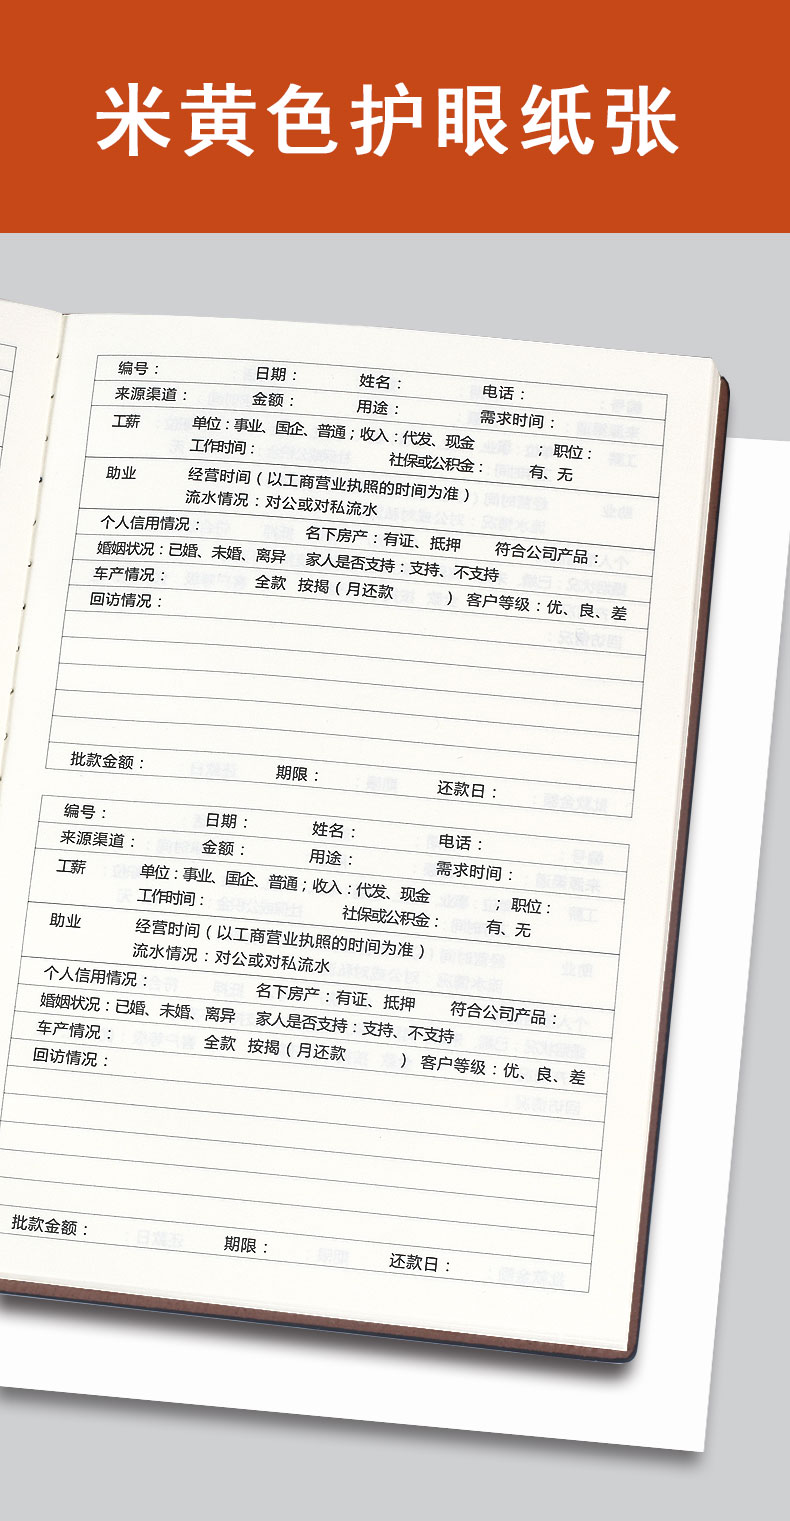 米黄色护眼纸张
编号： 日期： 姓名： 电话：
来源渠道： 金额： 用途： 需求时间：
工薪 单位：事业、国企、普通；收入：代发、现金 ；职位：
工作时间： 社保或公积金： 有、无
助业 经营时间（以工商营业执照的时间为准）
流水情况：对公或对私流水
个人信用情况： 名下房产：有证、抵押 符合公司产品：
婚姻状况：已婚、未婚、离异 家人是否支持：支持、不支持
车产情况： 全款 按揭（月还款 ） 客户等级：优、良、差
回访情况：
批款金额： 期限： 还款日：
编号： 日期： 姓名： 电话：
来源渠道： 金额： 用途： 需求时间：
工薪 单位：事业、国企、普通；收入：代发、现金 ；职位：
工作时间： 社保或公积金： 有、无
助业 经营时间（以工商营业执照的时间为准）
流水情况：对公或对私流水
个人信用情况： 名下房产：有证、抵押 符合公司产品：
婚姻状况：已婚、未婚、离异 家人是否支持：支持、不支持
车产情况： 全款 按揭（月还款 ） 客户等级：优、良、差
回访情况：
批款金额： 期限： 还款日：